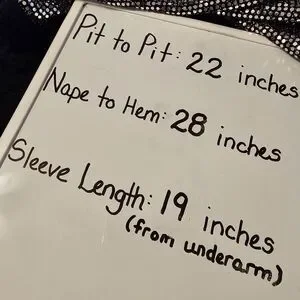 Pit to Pit: 22 inches
Nape to Hem: 28 inches
Sleeve Length: 19 inches
(from underarm)